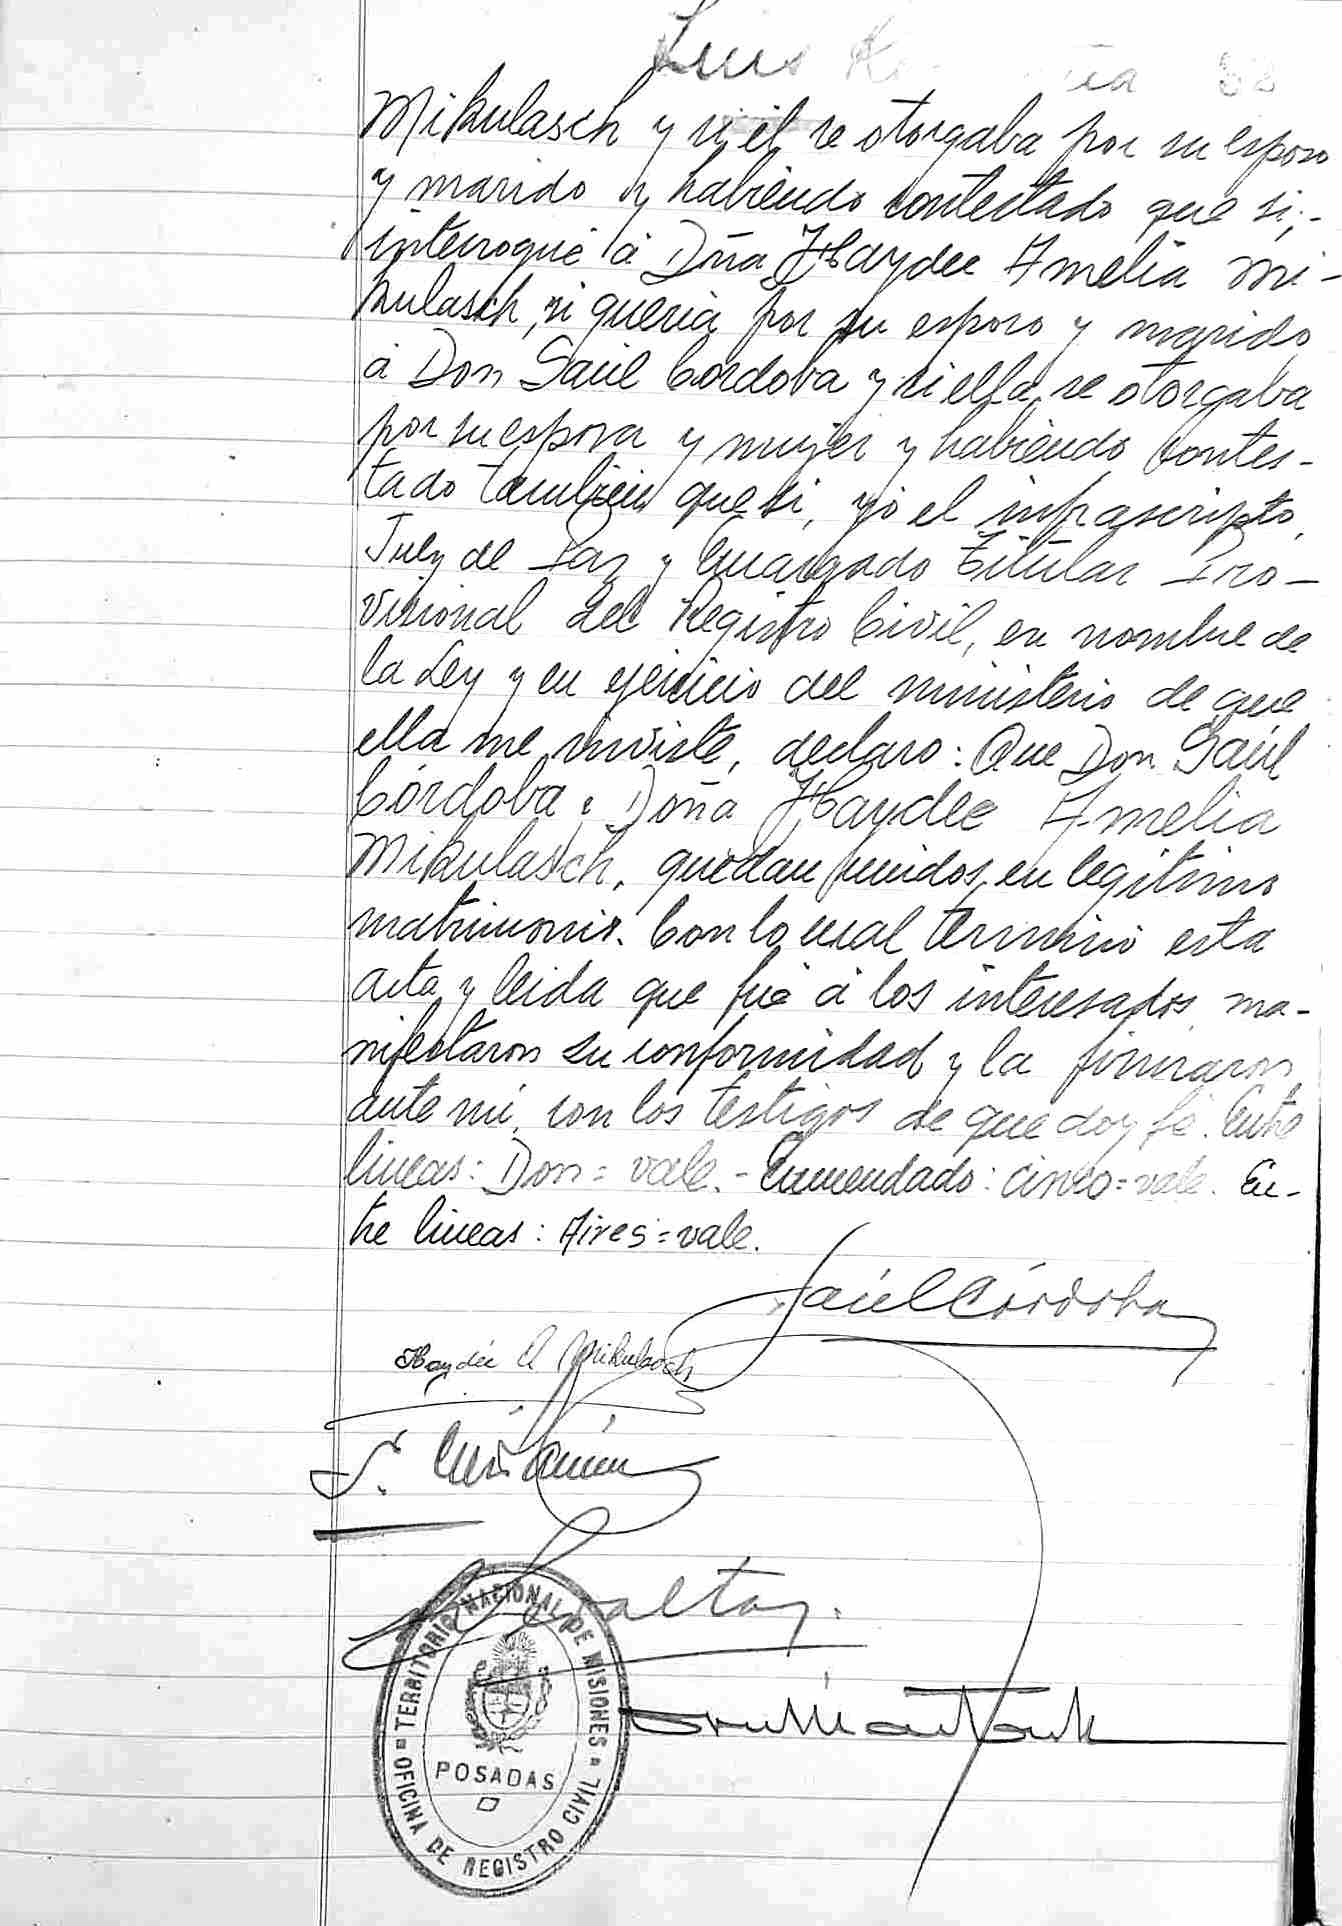 Luis
Mikulasch y si él se otorgaba por su esposo
y marido y habiendo contestado que si;-
interrogué á Dña Haydee Amelia Mi-
kulasch, si queria por su esposo y marido
á Don Saúl Córdova y si ella se otorgaba
por su esposa y mujer y habiendo contes-
tado también que si, yó el infrascripto,
Juez de Paz y Encargado Titular Pro-
visional del Registro Civil, en nombre de
la Ley y en ejercicio del ministerio de que
ella me inviste, declaro: Que Don Saúl
Córdoba y Doña Haydée Amelia
Mikulasch, quedan unidos en legítimo
matrimonio. Con lo cual terminó esta
acta y leída que fué á los interesados, ma-
nifestaron su conformidad y la firmaron
ante mi, con los testigos de que doy fé. Entre
lineas: Don=vale.- Enmendado: cinco=vale. En-
tre lineas: Aires=vale.
Saúl Córdoba
Haydée A Mikulasch
TERRITORIO NACIONAL DE MISIONES
POSADAS
OFICINA DE REGISTRO CIVIL